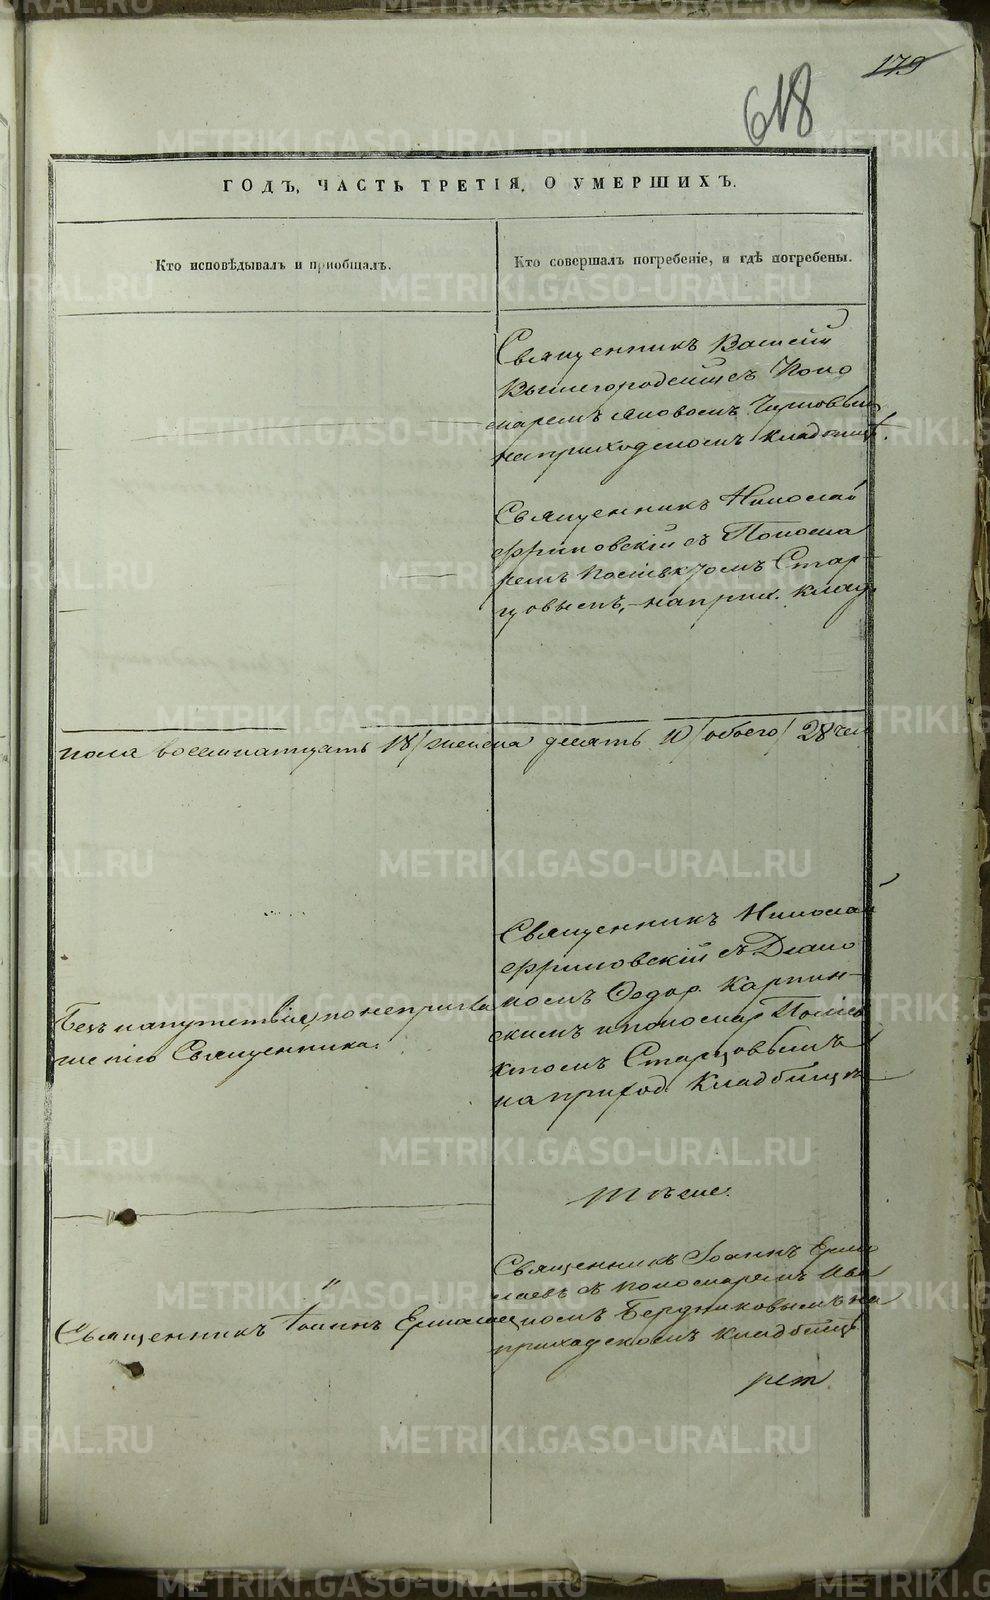 179
618
ГОДЪ, ЧАСТЬ ТРЕТІЯ, О УМЕРШИХЪ.
Кто исповѣдывалъ и пріобщалъ.
Кто совершалъ погребеніе, и гдѣ погребены.
Священникъ Василій
Вышегородскій съ Поно
маремъ Яковомъ
на приходскомъ кладбищѣ.
Священникъ Николай
Фриновскій съ Понома
ремъ Поліевктомъ Стар-
цовымъ, на прих. клад.
пола восемнатцать 18/ женска десять 10/ обоего/ 28 чел
Безъ напутствія, по непригла
шенію Священника.
Священникъ Николай
Фриновскій съ Діако
номъ Ѳодор. Карпин-
скимъ и пономар. Поліев
ктомъ Старцовымъ
на приход. Кладбищѣ
тѣже.
Священникъ Іоаннъ Ермолаев
Священникъ Іоаннъ Ермо
лаевъ съ пономаремъ Ива
номъ Бердниковымъ на
приходскомъ кладбищѣ
METRIKI.GASO-URAL.RU